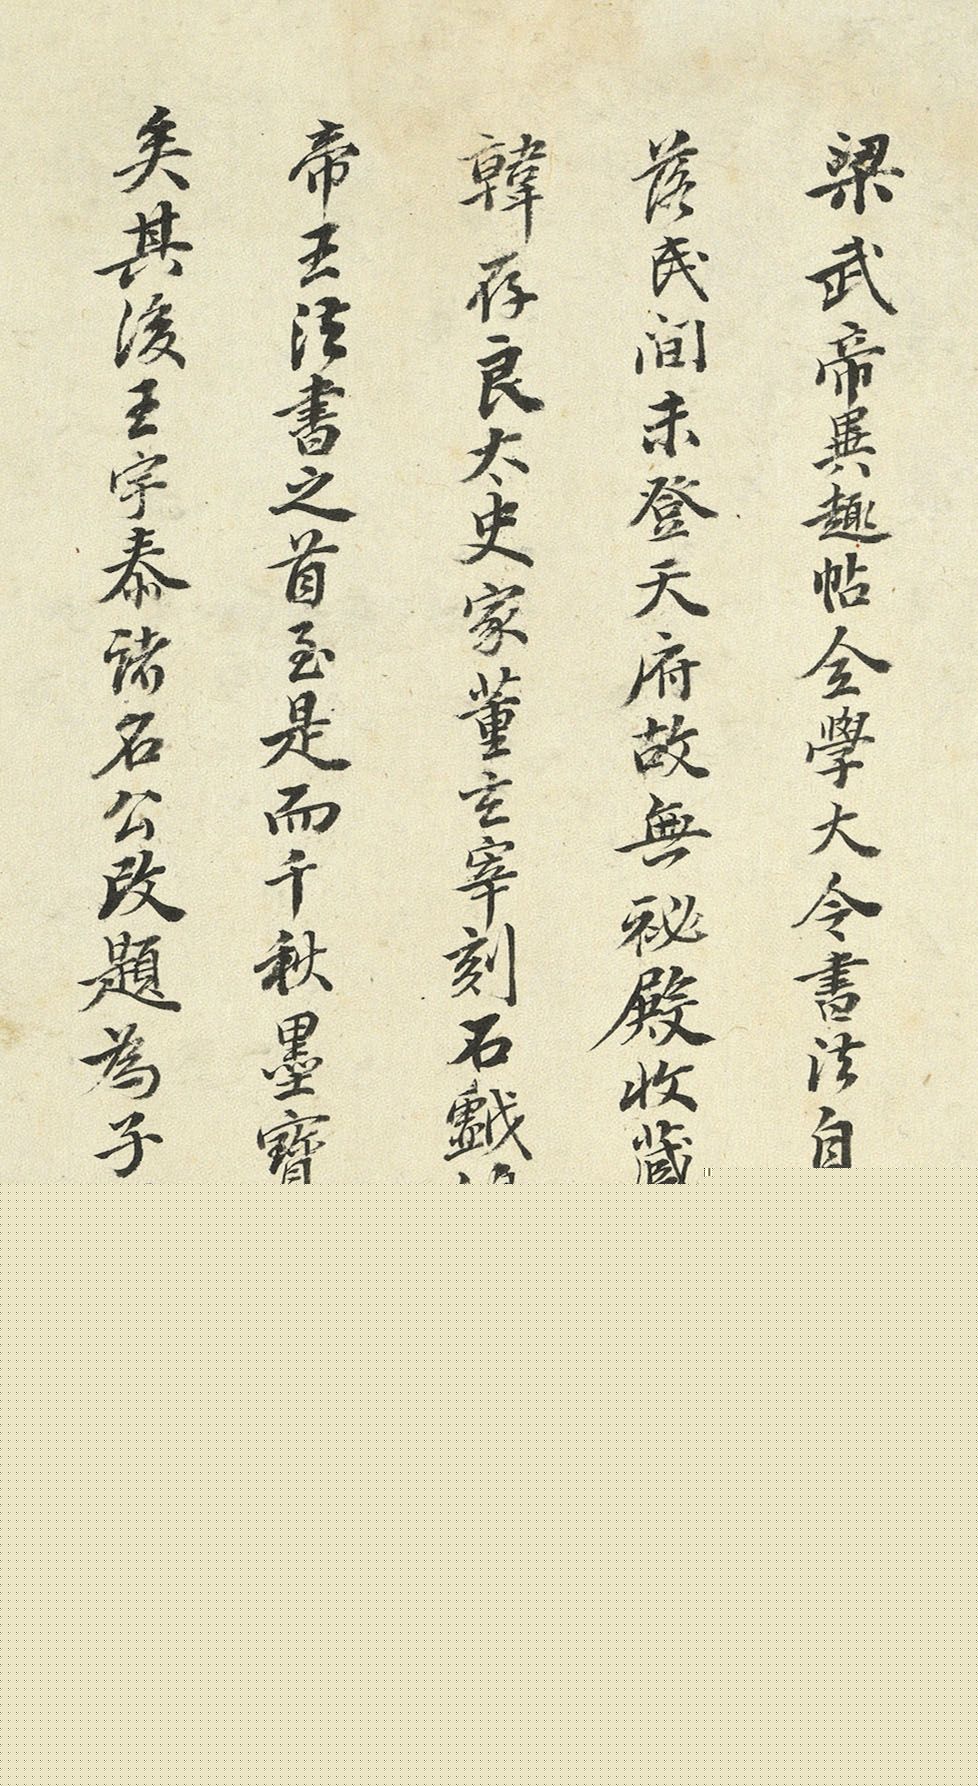 梁武帝異趣帖全學大令書法自
落民間未登天府故無祕殿收藏
韓存良太史家董玄宰刻石戲
帝王法書之首至是而千秋墨寶
矣其後王宇泰諸名公改題為子